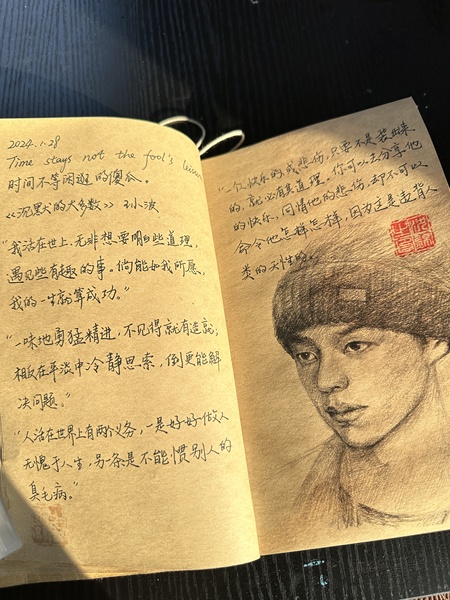 2024.1.29
Time stays not the fool's leisure
时间不等闲逛的傻瓜。
《沉默的大多数》 王小波
“我活在世上，无非想要明白些道理，
遇见些有趣的事。倘能如我所愿，
我的一生就算成功。”
“一味地勇猛精进，不见得就有造就；
相反在平淡中冷静思索，倒更能解
决问题。”
“人活在世界上有两个义务，一是好好做人
无愧于人生，另一条是不能惯别人的
臭毛病。”
“一个人快乐的或悲伤，只要不是装出来
的，就必有其道理。你可以去分享他
的快乐，同情他的悲伤，却不可以
命令他怎样怎样，因为这是违背人
类的天性的。”